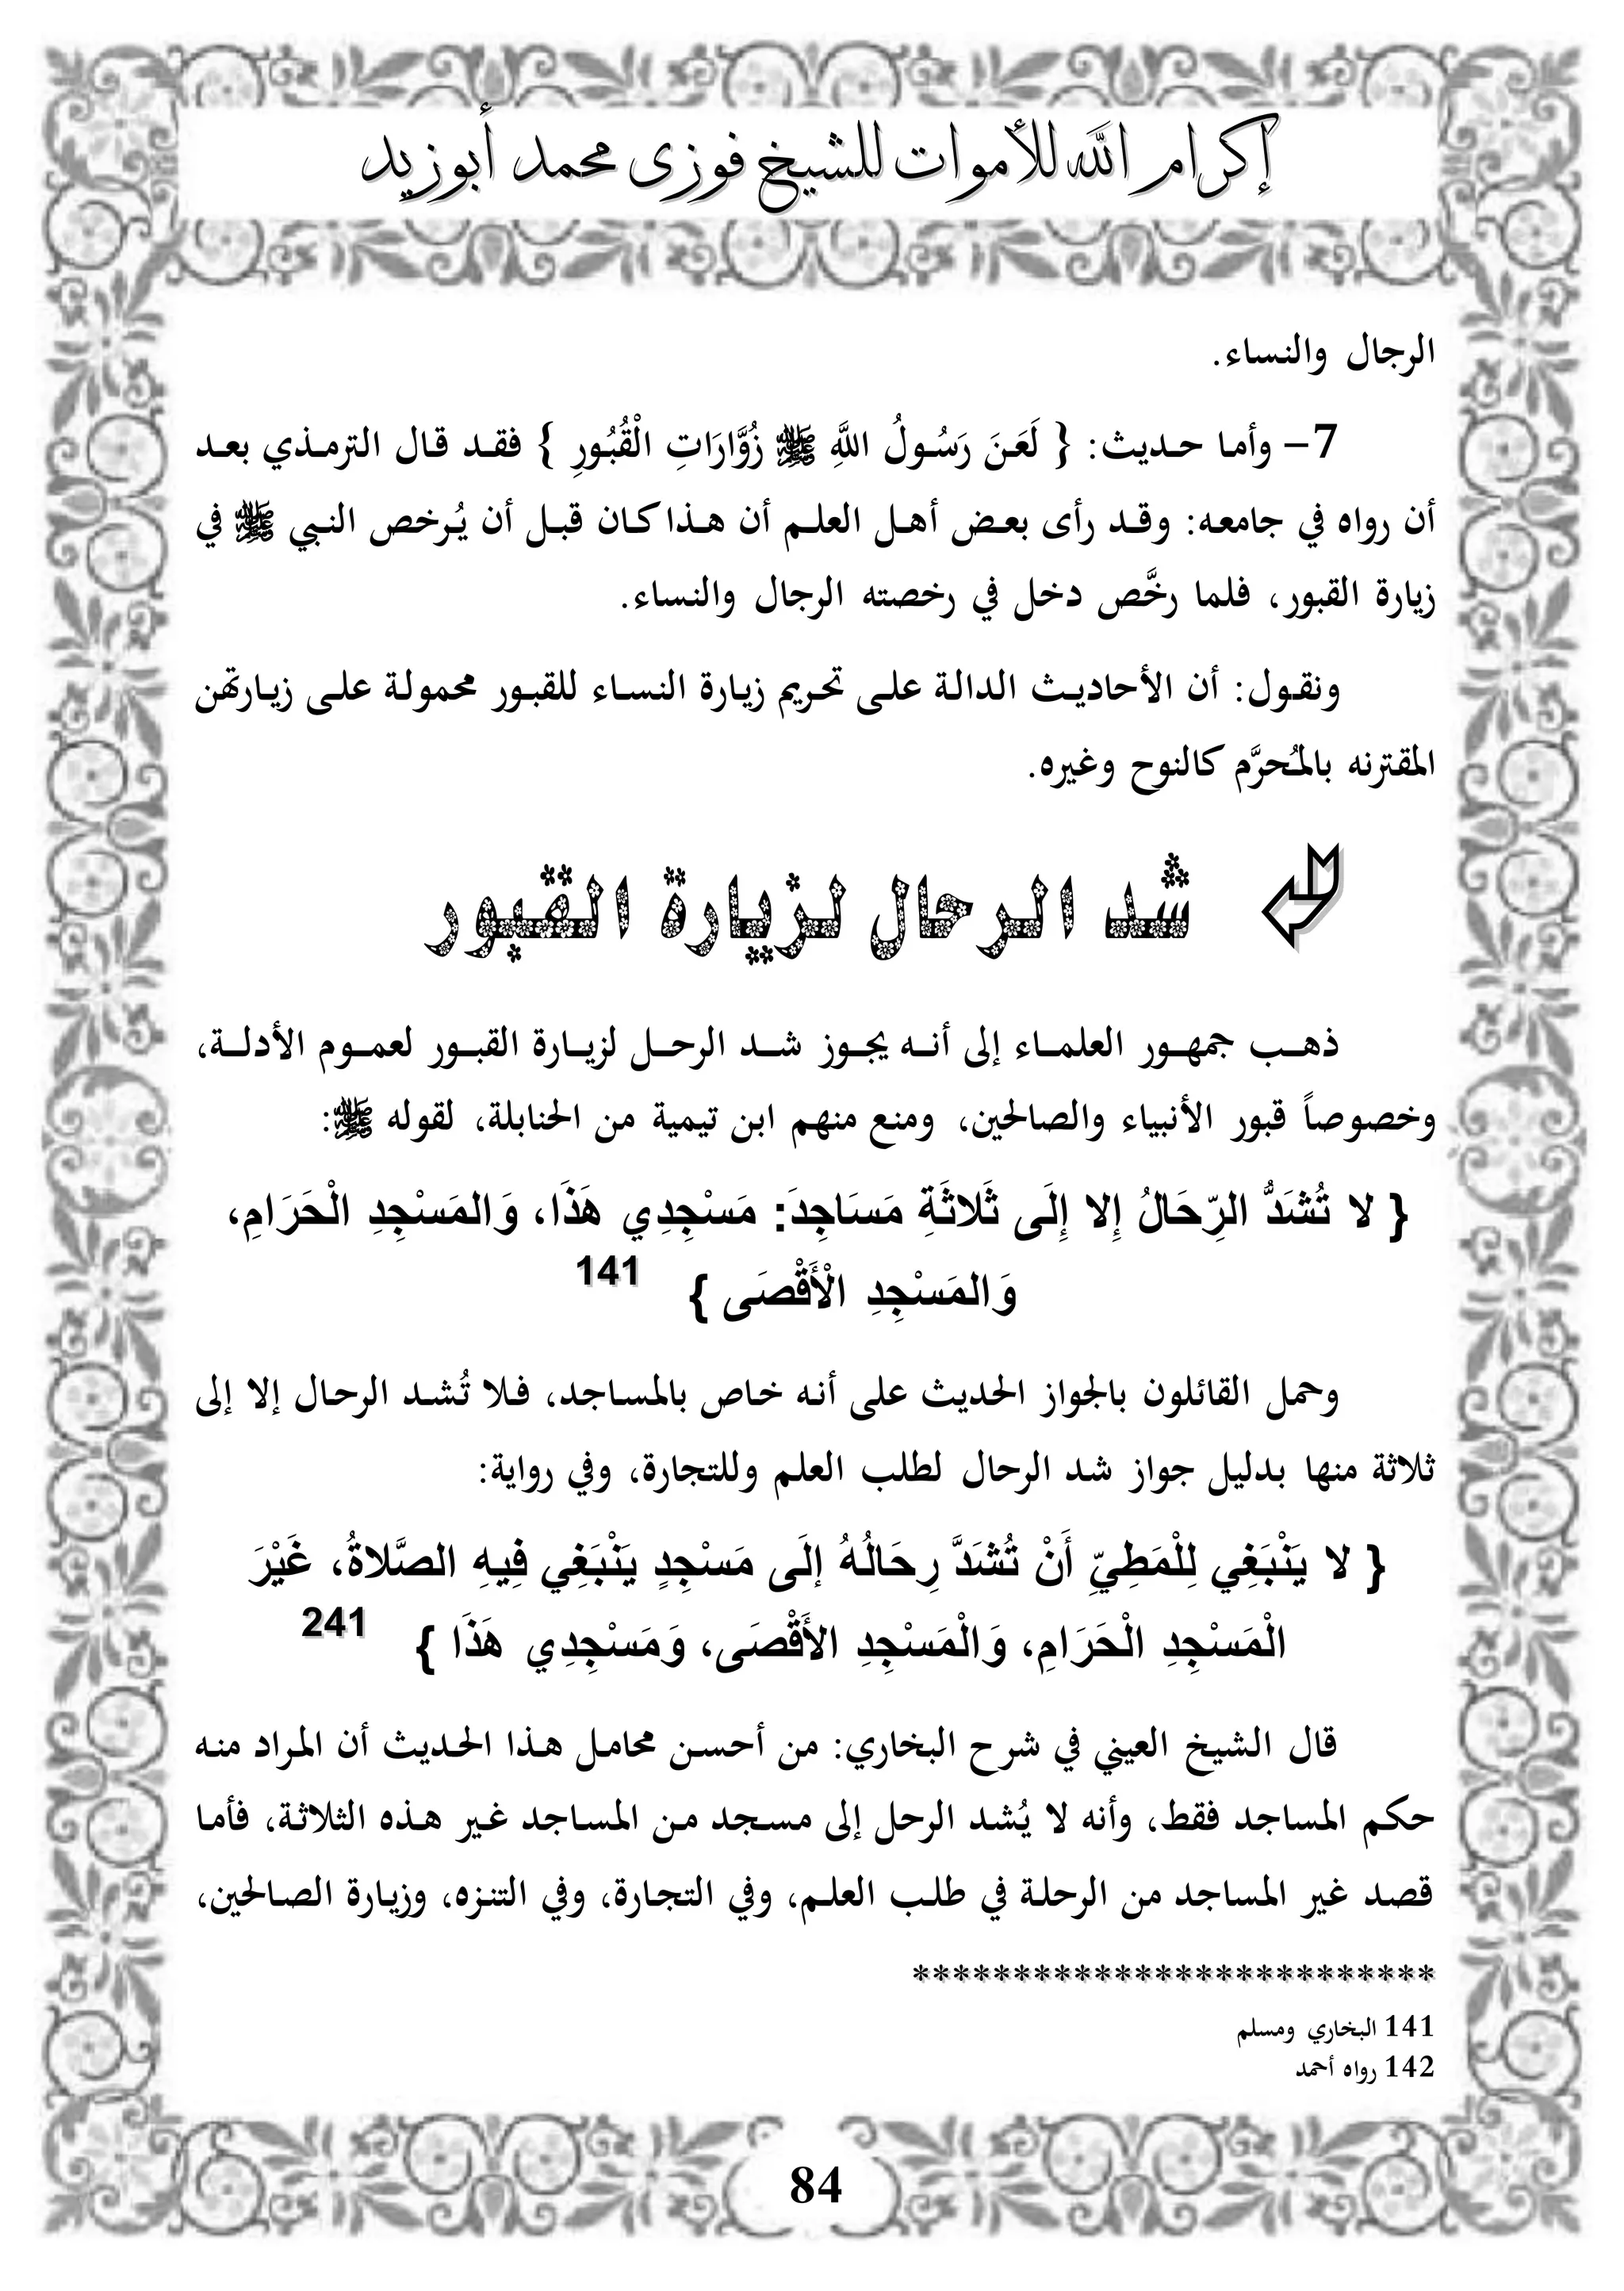 إكرام الله للأموات للشيخ فوزى محمد أبوزيد
الرجال والنساء.
7- وأما حديث: { لَعَنَ رَسُولُ اللَّهِ ﷺ زُوَّارَاتِ الْقُبُورِ } فقد قال الترمذي بعد
أن رواه في جامعه: وقد رأى بعض أهل العلم أن هذا كان قبل أن يُرخص النبي ﷺ في
زيارة القبور، فلما رخَّص دخل في رخصته الرجال والنساء.
ونقول: أن الأحاديث الدالة على تحريم زيارة النساء للقبور محمولة على زيارتهن
المقترنه بالمُحرَّم كالنوح وغيره.
شد الرحال لزيارة القبور
ذهب جمهور العلماء إلى أنه يجوز شد الرحل لزيارة القبور لعموم الأدلة،
وخصوصاً قبور الأنبياء والصالحين، ومنع منهم ابن تيمية من الحنابلة، لقوله ﷺ:
{ لا تُشَدُّ الرِّحَالُ إِلا إِلَى ثَلاثَةِ مَسَاجِدَ: مَسْجِدِي هَذَا، وَالمَسْجِدِ الْحَرَامِ،
وَالمَسْجِدِ الْأَقْصَى } 141
وحمل القائلون بالجواز الحديث على أنه خاص بالمساجد، فلا تُشد الرحال إلا إلى
ثلاثة منها بدليل جواز شد الرحال لطلب العلم وللتجارة، وفي رواية:
{ لا يَنْبَغِي لِلْمَطِيِّ أَنْ تُشَدَّ رِحَالُهُ إلَى مَسْجِدٍ يَنْبَغِي فِيهِ الصَّلاةُ، غَيْرَ
الْمَسْجِدِ الْحَرَامِ، وَالْمَسْجِدِ الأَقْصَى، وَمَسْجِدِي هَذَا } 241
قال الشيخ العيني في شرح البخاري: من أحسن محامل هذا الحديث أن المراد منه
حكم المساجد فقط، وأنه لا يُشد الرحل إلى مسجد من المساجد غير هذه الثلاثة، فأما
قصد غير المساجد من الرحلة في طلب العلم، وفي التجارة، وفي التنزه، وزيارة الصالحين،
**************************
141 البخاري ومسلم
142 رواه أحمد
84